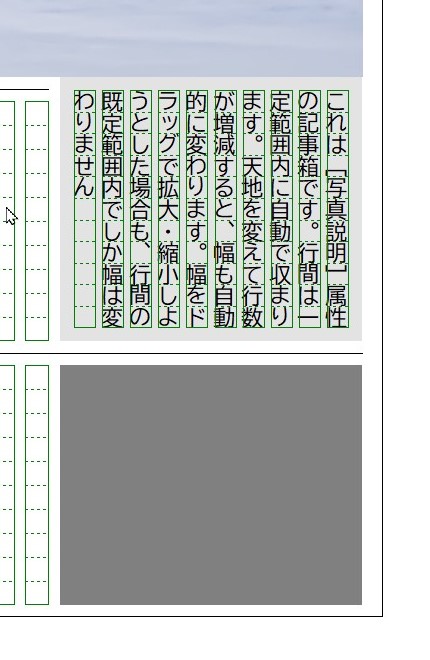 これは［写真説明］属性
の記事箱です。行間は一
定範囲内に自動で収まり
ます。天地を変えて行数
が増減すると、幅も自動
的に変わります。幅をド
ラッグで拡大・縮小しよ
うとした場合も、行間の
既定範囲内でしか幅は変
わりません